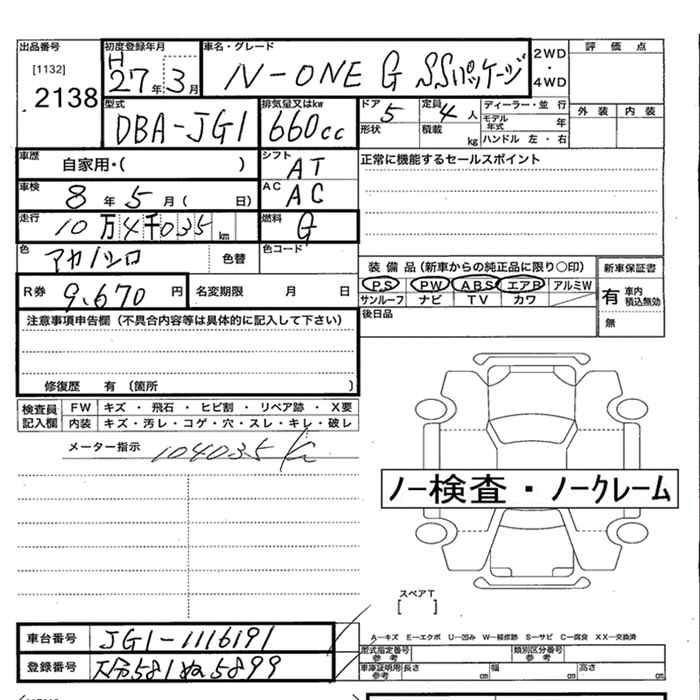 出品番号
[1132]
2138
初度登録年月
H
27年3月
車名・グレード
N-ONE G SSパッケージ
2WD
・
4WD
評価点
外装 内装
型式
DBA-JG1
排気量又はkw
660cc
ドア 5
形状
定員 4 人
積載 kg
ディーラー・並行
モデル年式 年
ハンドル 左・右
車歴
自家用・( )
シフト
AT
正常に機能するセールスポイント
車検
8年5月( 日)
AC
AC
走行
10万4千035㎞
燃料
G
色
アカ/シロ
色替
色コード
装備品(新車からの純正品に限り○印)
新車保証書
PS PW ABS エアB アルミW
サンルーフ ナビ TV カワ
有 車内積込無効
無
後日品
R券
9,670円
名変期限 月 日
注意事項申告欄(不具合内容等は具体的に記入して下さい)
修復歴 有 (箇所 )
検査員記入欄
FW キズ・飛石・ヒビ割・リペア跡・X要
内装 キズ・汚レ・コゲ・穴・スレ・キレ・破レ
メーター指示
104035
ノー検査・ノークレーム
スペアT
[ ]
車台番号
JG1-1116191
登録番号
大分581ぬ5899
A―キズ E―エクボ U―凹み W―補修跡 S―サビ C―腐食 XX―交換済
型式指定番号
参考
類別区分番号
参考
車庫証明用
参考
長さ ㎝ 幅 ㎝ 高さ ㎝